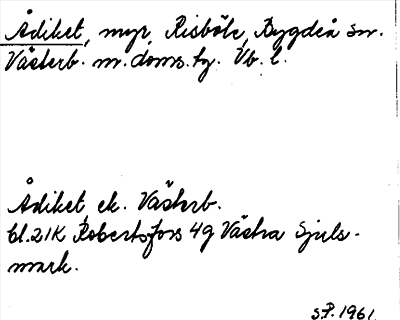 Ådiket, myr, Risböle, Bygdeå sn.
Västerb. n. doms. by. Vb. l.
Ådiket, ek. Västerb.
bl. 21K Robertsfors 4g Västra Sjuls-
mark.
S.P. 1961